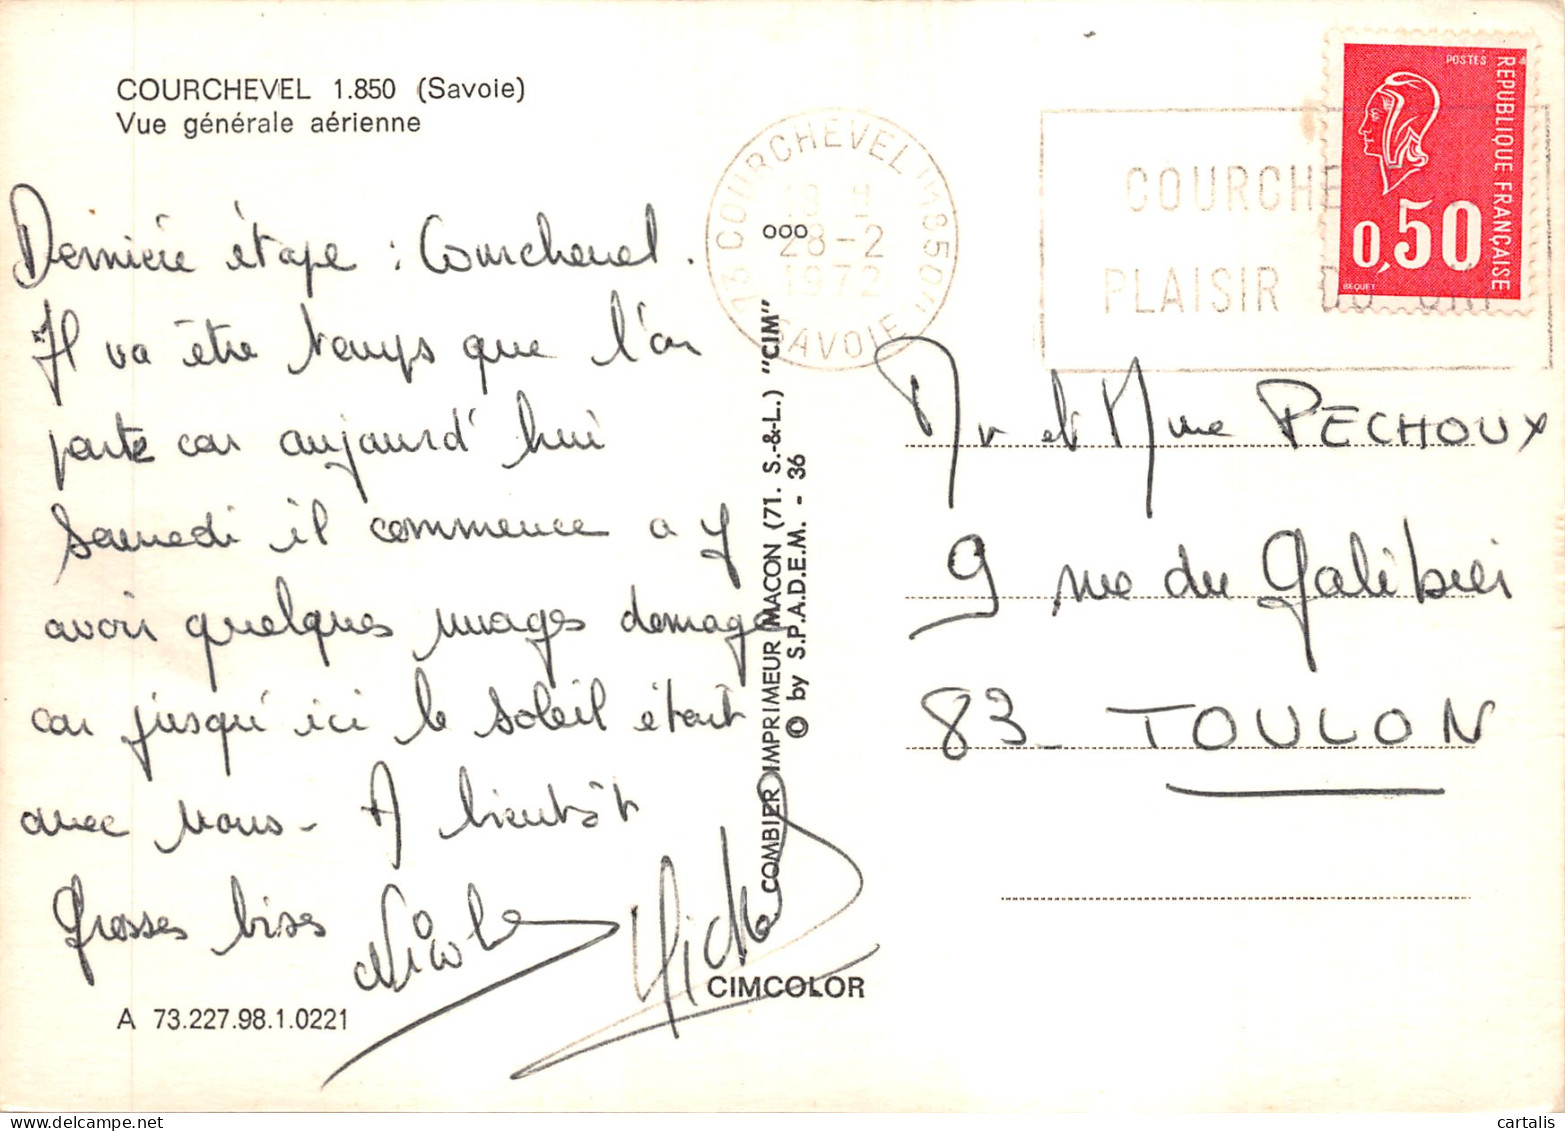 COURCHEVEL 1.850 (Savoie)
Vue générale aérienne
Dernière étape : Courchevel.
Il va être temps que l'on
parte car aujourd'hui
samedi il commence a y
avoir quelques nuages domage
car jusqu'ici le soleil était
avec nous - A bientôt
Grosses bises Nicole Michel
A 73.227.98.1.0221
CIMCOLOR
COMBIER IMPRIMEUR MACON (71. S.-&-L.) "CIM"
© by S.P.A.D.E.M. - 36
73 COURCHEVEL "1850"
18 H
ooo
28-2
1972
SAVOIE
COURCHE
PLAISIR DU SKI
POSTES
REPUBLIQUE FRANÇAISE
0,50
BEQUET
Mr et Mme PECHOUX
9 rue du Galibier
83 - TOULON
cartalis